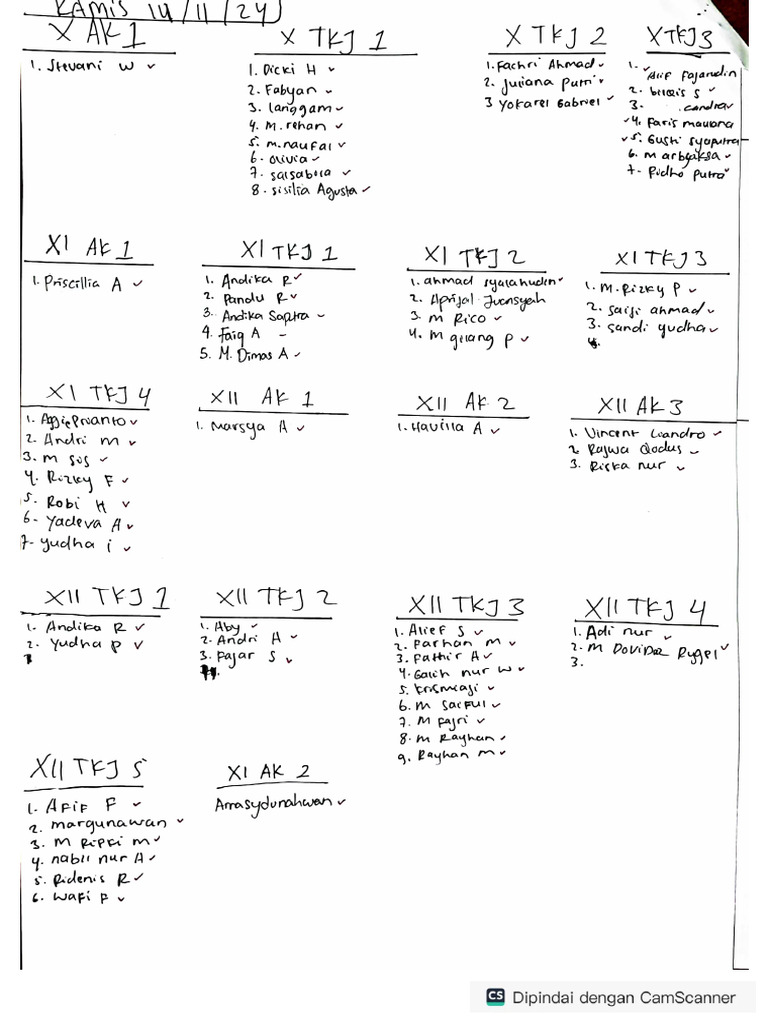 KAMIS 14/11/24
X AK 1
1. Stevani W ✓
X TKJ 1
1. Dicki H ✓
2. Fabyan ✓
3. langgam ✓
4. M. rehan ✓
5. m. naufal ✓
6. olivia ✓
7. salsabila ✓
8. sisilia Agusta ✓
X TKJ 2
1. Fachri Ahmad ✓
2. Juliana Putri ✓
3 Yokarel Gabriel ✓
X TKJ 3
1. ✓ Alif Fajarudin
2. bilqis S ✓
3. candra ✓
✓ 4. Faris maulana
✓ 5. Gusti syaputra
6. M arbyaksa ✓
7. Ridho putra ✓
XI AK 1
1. Priscillia A ✓
XI TKJ 1
1. Andika R ✓
2. Pandu R ✓
3. Andika Saptra ✓
4. Faiq A -
5. M. Dimas A ✓
XI TKJ 2
1. ahmad syalahudin ✓
2. Aprijal Juensyah
3. M Rico ✓
4. M gilang P ✓
XI TKJ 3
1. M. Rizky P ✓
2. Saifi ahmad ✓
3. sandi yudha ✓
4.
XI TKJ 4
1. Aggie Prianto ✓
2. Andri M ✓
3. M sos ✓
4. Rizky F ✓
5. Robi H ✓
6. Yadeva A ✓
7. yudha i ✓
XII AK 1
1. Marsya A ✓
XII AK 2
1. Havilla A ✓
XII AK 3
1. Vincent Leandro ✓
2 Rajwa Qodus ✓
3. Riska nur ✓
XII TKJ 1
1. Andika R ✓
2. Yudha P ✓
XII TKJ 2
1. Aby ✓
2. Andri H ✓
3. Fajar S ✓
XII TKJ 3
1. Alief S ✓
2. Farhan M ✓
3. Fathir A ✓
4. Galih nur W ✓
5. krismiaji ✓
6. M saiful ✓
7. M Fajri ✓
8. M Rayhan ✓
9. Rayhan M ✓
XII TKJ 4
1. Adi nur ✓
2. M Davidor Rygel ✓
3.
XII TKJ 5
1. Afif F ✓
2. margunawan ✓
3. M Rifki M ✓
4. nabil nur A ✓
5. Ridenis R ✓
6. Wafi F ✓
XI AK 2
Arrasydunahwan ✓
CS Dipindai dengan CamScanner